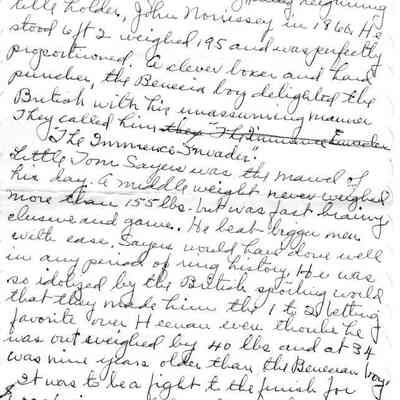 title holder, John Morrissey in 1860. He
stood 6 ft 2 weighed 195 and was perfectly
proportioned. A clever boxer and hard
puncher, the Benecia boy delighted the
British with his unassuming manner
They called him they "The Immence Invader
"The Immence Invader".
Little Tom Sayers was the marvel of
his day. A middle weight never weighed
more than 155 lbs. but was fast brainy
elusive and game. He beat bigger men
with ease. Sayers would have done well
in any period of ring history. He was
so idolized by the British sporting world
that they made him the 1 to 2 betting
favorite over Heenan even though he
was out weighed by 40 lbs and at 34
was nine years older than the Benecian boy"
It was to be a fight to the finish for